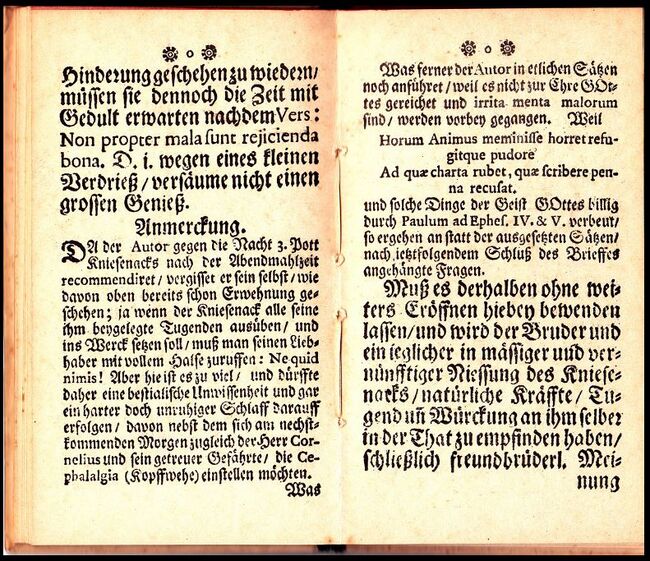 o
Hinderung geschehen zu wiedern/
müssen sie dennoch die Zeit mit
Gedult erwarten nach dem Vers:
Non propter mala sunt rejicienda
bona. D. i. wegen eines kleinen
Verdrieß / versäume nicht einen
grossen Genieß.
Anmerckung.
DA der Autor gegen die Nacht 3. Pott
Kniesenacks nach der Abendmahlzeit
recommendiret / vergisset er sein selbst / wie
davon oben bereits schon Erwehnung ge-
schehen; ja wenn der Kniesenack alle seine
ihm beygelegte Tugenden ausüben / und
ins Werck setzen soll / muß man seinen Lieb-
haber mit vollem Halse zuruffen: Ne quid
nimis! Aber hie ist es zu viel / und dürffte
daher eine bestialische Unwissenheit und gar
ein harter doch unruhiger Schlaff darauff
erfolgen / davon nebst dem sich am nechst-
kommenden Morgen zugleich der Herr Cor-
nelius und sein getreuer Gefährte / die Ce-
phalalgia (Kopffwehe) einstellen möchten.
Was
o
Was ferner der Autor in etlichen Sätzen
noch anführet / weil es nicht zur Ehre GOt-
tes gereichet und irritamenta malorum
sind / werden vorbey gegangen. Weil
Horum Animus meminisse horret refu-
gitque pudore
Ad quæ charta rubet, quæ scribere pen-
na recusat.
und solche Dinge der Geist GOttes billig
durch Paulum ad Ephes. IV. & V. verbeut /
so ergehen an statt der ausgesetzten Sätzen /
nach jetztfolgendem Schluß des Brieffes
angehängte Fragen.
Muß es derhalben ohne wei-
ters Eröffnen hiebey bewenden
lassen / und wird der Bruder und
ein jeglicher in mässiger und ver-
nünfftiger Niessung des Kniese-
nacks / natürliche Kräffte / Tu-
gend uñ Würckung an ihm selber
in der That zu empfinden haben /
schließlich freundbrüderl. Mei-
nung